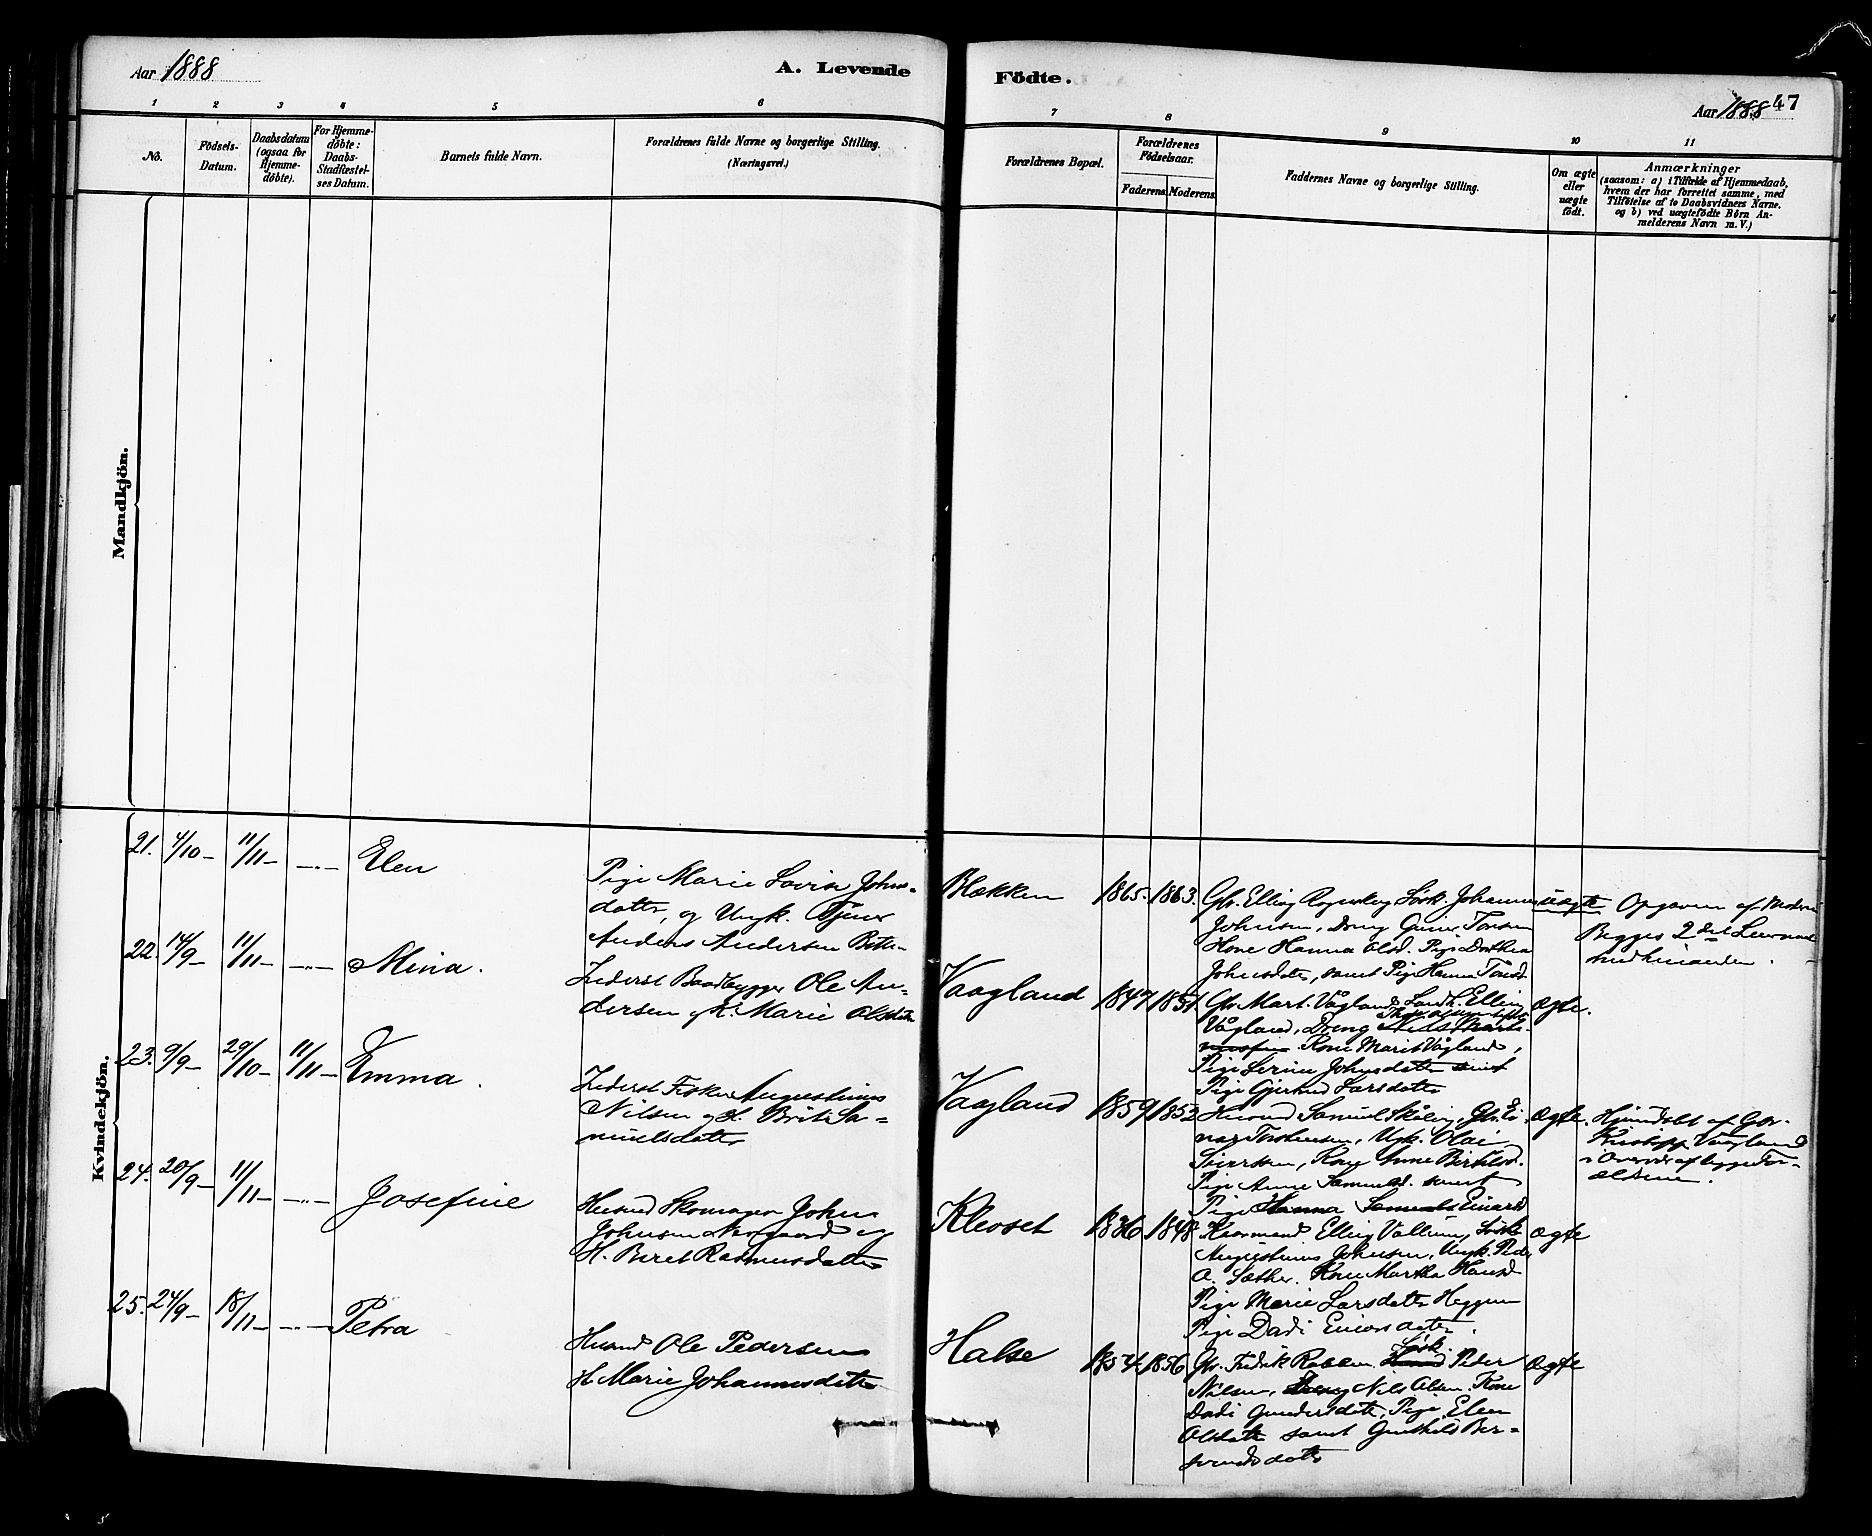 Aar 1888
A. Levende
Födte.
Aar 1888 47
1 2 3 4 5 6
7 8 9 10 11
No.
Födsels-
Datum.
Daabsdatum
(ogsaa for
Hjemme-
döbte).
For Hjemme-
döbte:
Daabs-
Stadfæstel-
ses Datum.
Barnets fulde Navn.
Forældrenes fulde Navne og borgerlige Stilling.
(Næringsvei.)
Forældrenes Bopæl.
Forældrenes
Födselsaar.
Faderens. Moderens.
Faddernes Navne og borgerlige Stilling.
Om ægte
eller
uægte
födt.
Anmærkninger
(saasom: a) i Tilfælde af Hjemmedaab,
hvem der har forrettet samme, med
Tilföielse af to Daabsvidners Navne.
og b) ved uægtefödte Börn An-
melderens Navn m. V.)
Mandkjön.
Kvindekjön.
21. 4/10 - 11/11 - -"- Elen
Pige Marie Lovise Johns-
datter, og Ungk. Tjener
Anders Andersen
Blækken 1865. 1863.
Gbr. Elling
Johnsen, Dreng
Kone Hanna Olsd. Pige Dorthea
Johnsdatter, samt Pige Hanna
uægte
Opgaven af Moderen
Begges 2det Leiermaal
22. 14/9 - 11/11 - -"- Mina.
Inderst Baadbygger Ole An-
dersen og H. Marie Olsdatter
Vaagland 1847 1851.
Gbr. Mart. Vågland, Elling
Vågland, Dreng
Kone Marit Vågland,
Pige Serine Johnsdatter samt
Pige Gjertrud Larsdatter
Ægte.
23. 9/9 - 29/10 - 11/11 - Emma.
Inderst Fisker Augustinus
Nilsen og H. Brit Sa-
muelsdatter
Vaagland 1859 1853
Husmd Samuel Gbr. Ei-
nar Torstensen, Ungk. Olae
Siversen, Kone Anne
Pige Anne samt
Pige Hanna
Ægte.
Hjemdøbt af Gbr.
Kristoffer Vaagland
i Overvær af begge For-
ældrene.
24. 20/9 - 11/11 - -"- Josefine
Husmd Skomager John
Johnsen Norgaard og
H. Beret Rasmusdatter
Kleveset 1836 1848
Kaarmand Elling
Augustinus Johnsen, Ungk. Peder
O. Sæther. Kone Martha Hansd
Pige Marie Larsdatter Heggem
Pige Dadi
Ægte
25. 24/9 - 18/11 - -"- Petra
Husmd Ole Pedersen
H. Marie Johannesdatter
Halse 1854. 1856
Gbr. Fredrik Rakken Peder
Nilsen, Nils Olsen. Kone
Dadi Gundersdatter, Pige Elen
Olsdatter samt Gunhild Ber-
sdatter
Ægte